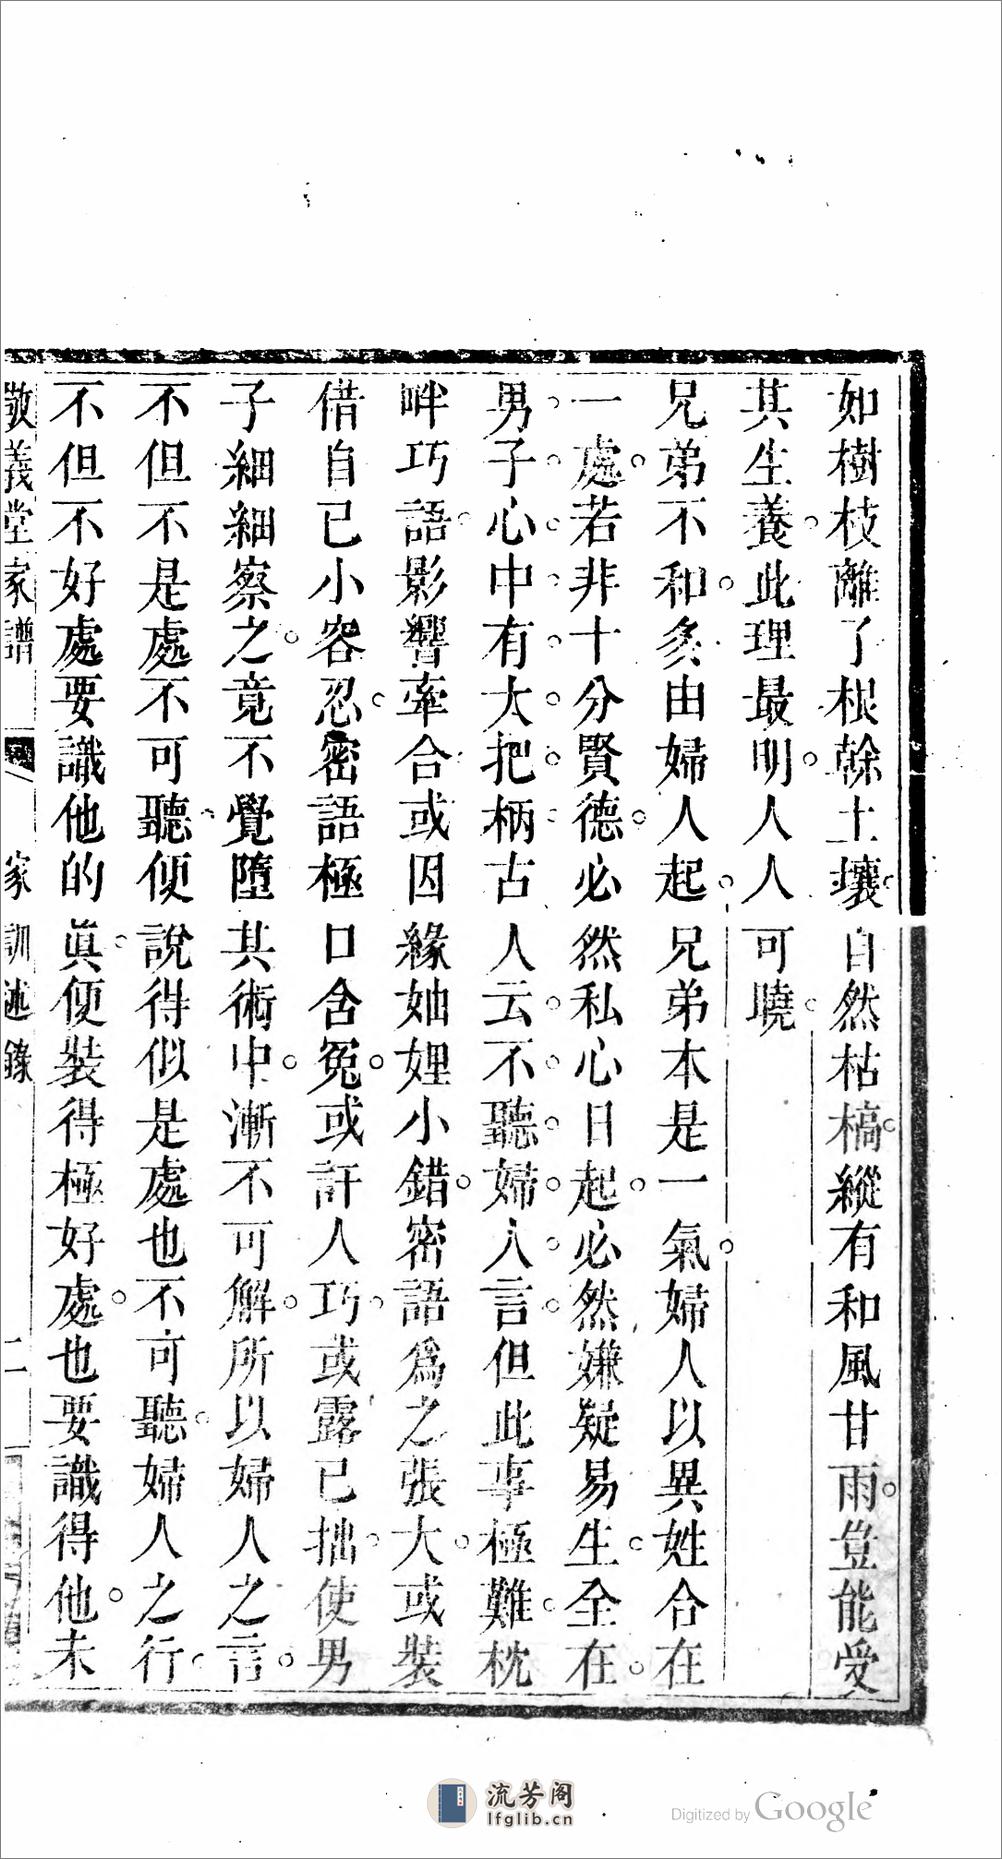 如樹枝離了根榦土壤自然枯槁縱有和風甘雨豈能受
其生養此理最明人人可曉
兄弟不和多由婦人起兄弟本是一氣婦人以異姓合在
一處若非十分賢德必然私心日起必然嫌疑易生全在
男子心中有大把柄古人云不聽婦人言但此事極難枕
畔巧語影響牽合或因緣妯娌小錯密語爲之張大或裝
借自已小容忍密語極口含冤或訐人巧或露已拙使男
子細細察之竟不覺墮其術中漸不可解所以婦人之言
不但不是處不可聽便說得似是處也不可聽婦人之行
不但不好處要識他的眞便裝得極好處也要識得他未
敬義堂家譜 家訓述錄 二
流芳阁
lfglib.cn
Digitized by Google